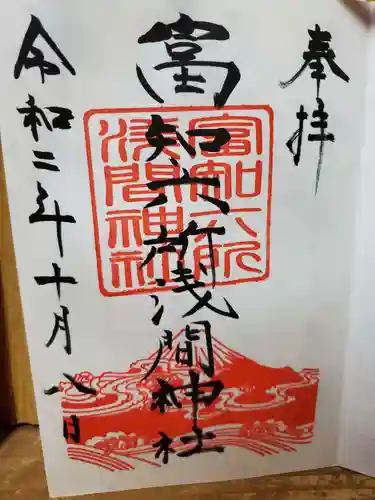 奉拝
富知六所浅間神社
富知六所
浅間神社
令和二年十月八日